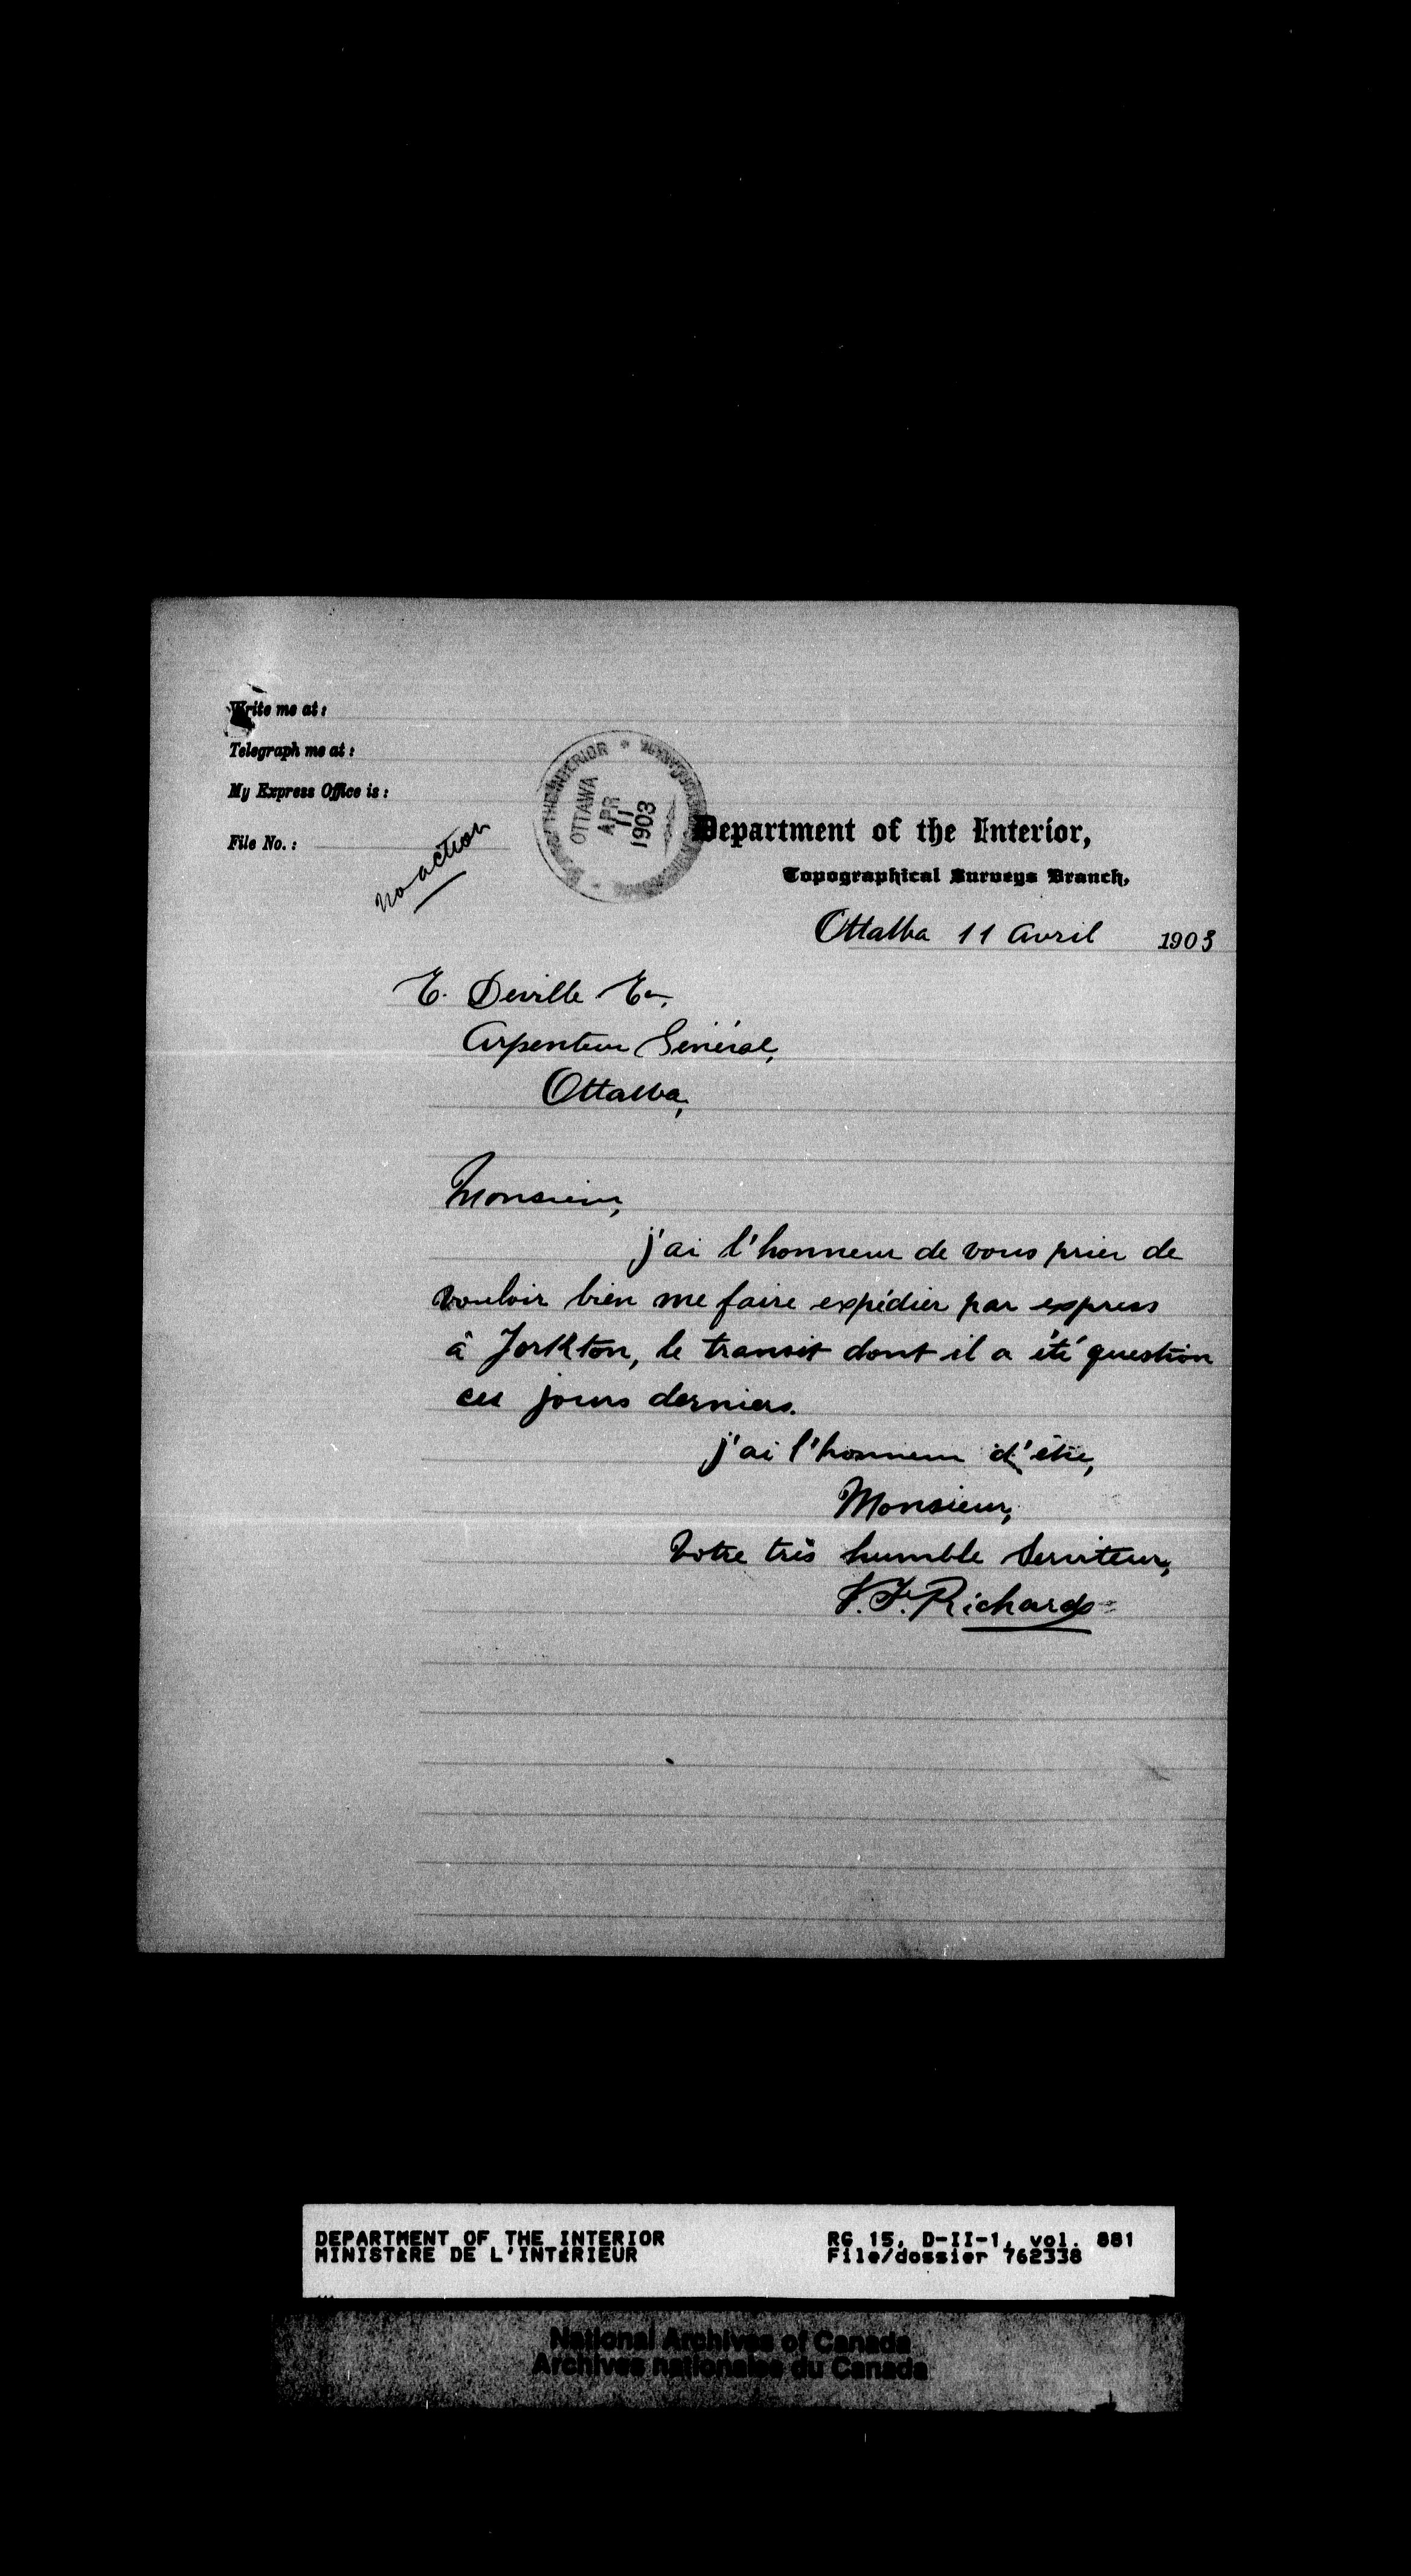 Write me at:
Telegraph me at:
My Express Office is:
File No.:
no action
THE INTERIOR
OTTAWA
APR
11
1903
Department of the Interior,
Topographical Surveys Branch,
Ottawa 11 Avril 1903
E. Deville Er,
Arpenteur Général,
Ottawa,
Monsieur,
j'ai l'honneur de vous prier de
vouloir bien me faire expédier par express
à Yorkton, le transit dont il a été question
ces jours derniers.
j'ai l'honneur d'être,
Monsieur,
Votre très humble Serviteur,
J.F. Richard
DEPARTMENT OF THE INTERIOR
MINISTÈRE DE L'INTÉRIEUR
RG 15, D-II-1, vol. 881
File/dossier 762338
National Archives of Canada
Archives nationales du Canada